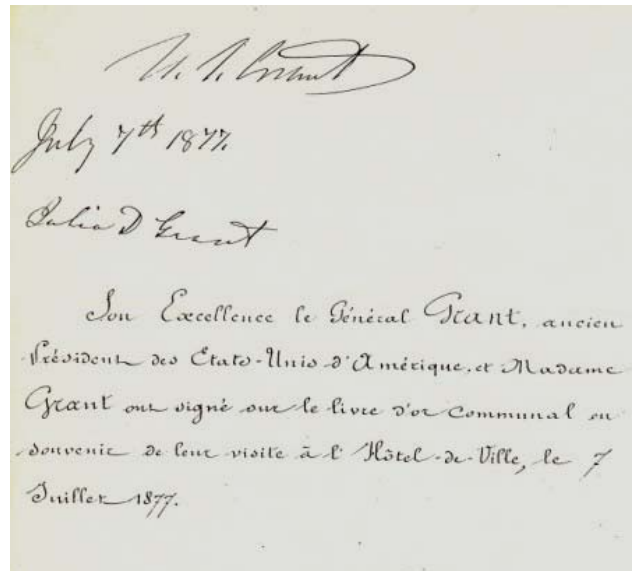 U. S. Grant
July 7th 1877.
Julia D Grant
Son Excellence le Général Grant, ancien
Président des Etats-Unis d'Amérique, et Madame
Grant ont signé sur le livre d'or Communal en
souvenir de leur visite à l'Hôtel-de-Ville, le 7
Juillet 1877.